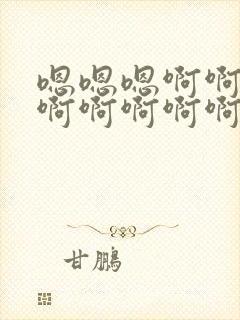 嗯嗯嗯啊啊
啊啊啊啊啊
甘鹏